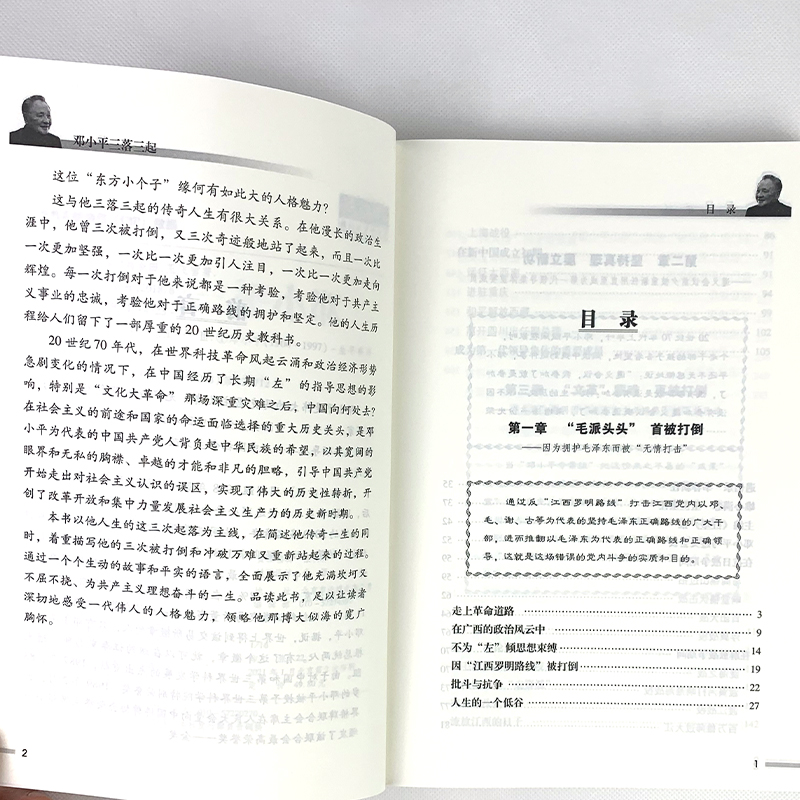 邓小平三落三起
这位“东方小个子”缘何有如此大的人格魅力？
这与他三落三起的传奇人生有很大关系。在他漫长的政治生
涯中，他曾三次被打倒，又三次奇迹般地站了起来，而且一次比
一次更加坚强，一次比一次更加引人注目，一次比一次更加走向
辉煌。每一次打倒对于他来说都是一种考验，考验他对于共产主
义事业的忠诚，考验他对于正确路线的拥护和坚定。他的人生历
程给人们留下了一部厚重的20世纪历史教科书。
20世纪70年代，在世界科技革命风起云涌和政治经济形势
急剧变化的情况下，在中国经历了长期“左”的指导思想的影
响，特别是“文化大革命”那场深重灾难之后，中国向何处去？
在社会主义的前途和国家的命运面临选择的重大历史关头，是邓
小平为代表的中国共产党人背负起中华民族的希望，以其宽阔的
眼界和无私的胸襟、卓越的才能和非凡的胆略，引导中国共产党
开始走出对社会主义认识的误区，实现了伟大的历史性转折，开
创了改革开放和集中力量发展社会主义生产力的历史新时期。
本书以他人生的这三次起落为主线，在简述他传奇一生的同
时，着重描写他的三次被打倒和冲破万难又重新站起来的过程。
通过一个个生动的故事和平实的语言，全面展示了他充满坎坷又
不屈不挠、为共产主义理想奋斗的一生。品读此书，足以让读者
深切地感受一代伟人的人格魅力，领略他那博大似海的宽广
胸怀。
2
目 录
目 录
第一章 “毛派头头” 首被打倒
——因为拥护毛泽东而被“无情打击”
通过反“江西罗明路线”打击江西党内以邓、
毛、谢、古等为代表的坚持毛泽东正确路线的广大干
部，进而推翻以毛泽东为代表的正确路线和正确领
导，这就是这场错误的党内斗争的实质和目的。
走上革命道路 3
在广西的政治风云中 9
不为“左”倾思想束缚 14
因“江西罗明路线”被打倒 19
批斗与抗争 22
人生的一个低谷 27
1